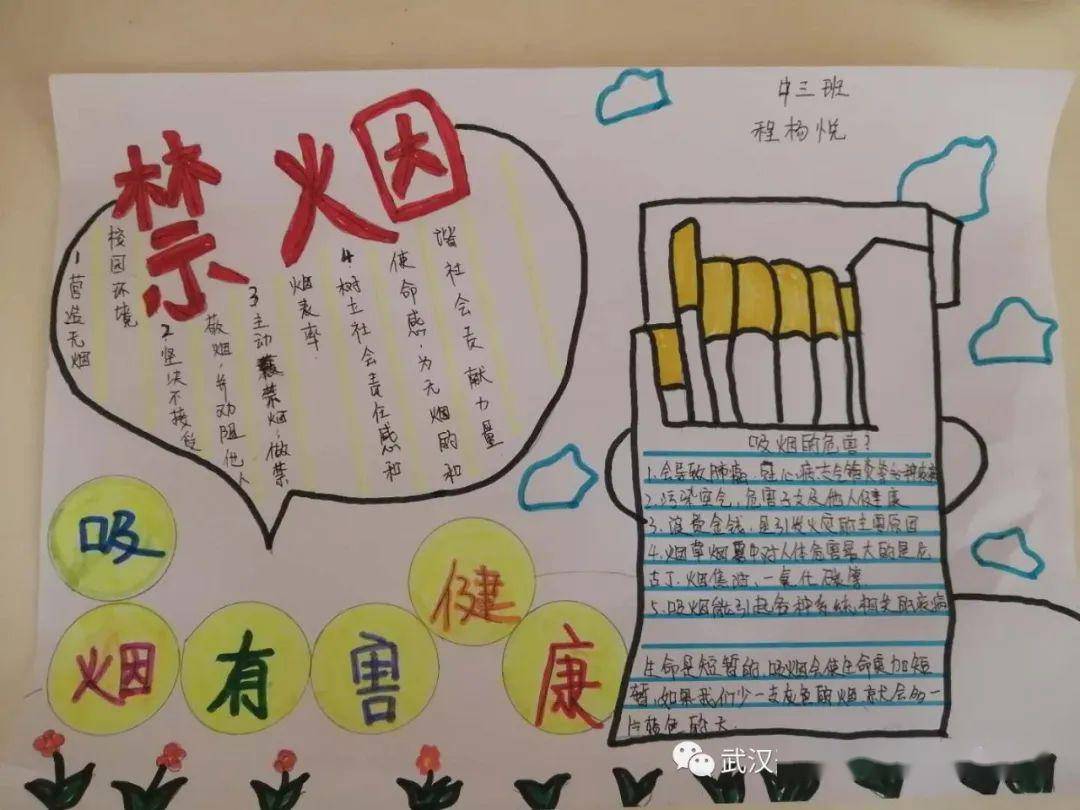 禁烟
中三班
程杨悦
1营造无烟
校园环境
2坚决不接受
敬烟,并劝阻他人
3主动禁烟,做禁
烟表率.
4.树立社会责任感和
使命感,为无烟的和
谐社会贡献力量
吸烟有害健康
吸烟的危害?
1.会导致肺癌、冠心病
2.污染空气,危害子女及他人健康
3.浪费金钱,是引发火灾的主要原因
4.烟草烟雾中对人体危害最大的是尼
古丁、烟焦油、一氧化碳等
5.吸烟能引起各种系统相关的疾病
生命是短暂的,吸烟会使生命更加短
暂,如果我们少一支灰色的烟,就会多一
片蓝色的天.
武汉